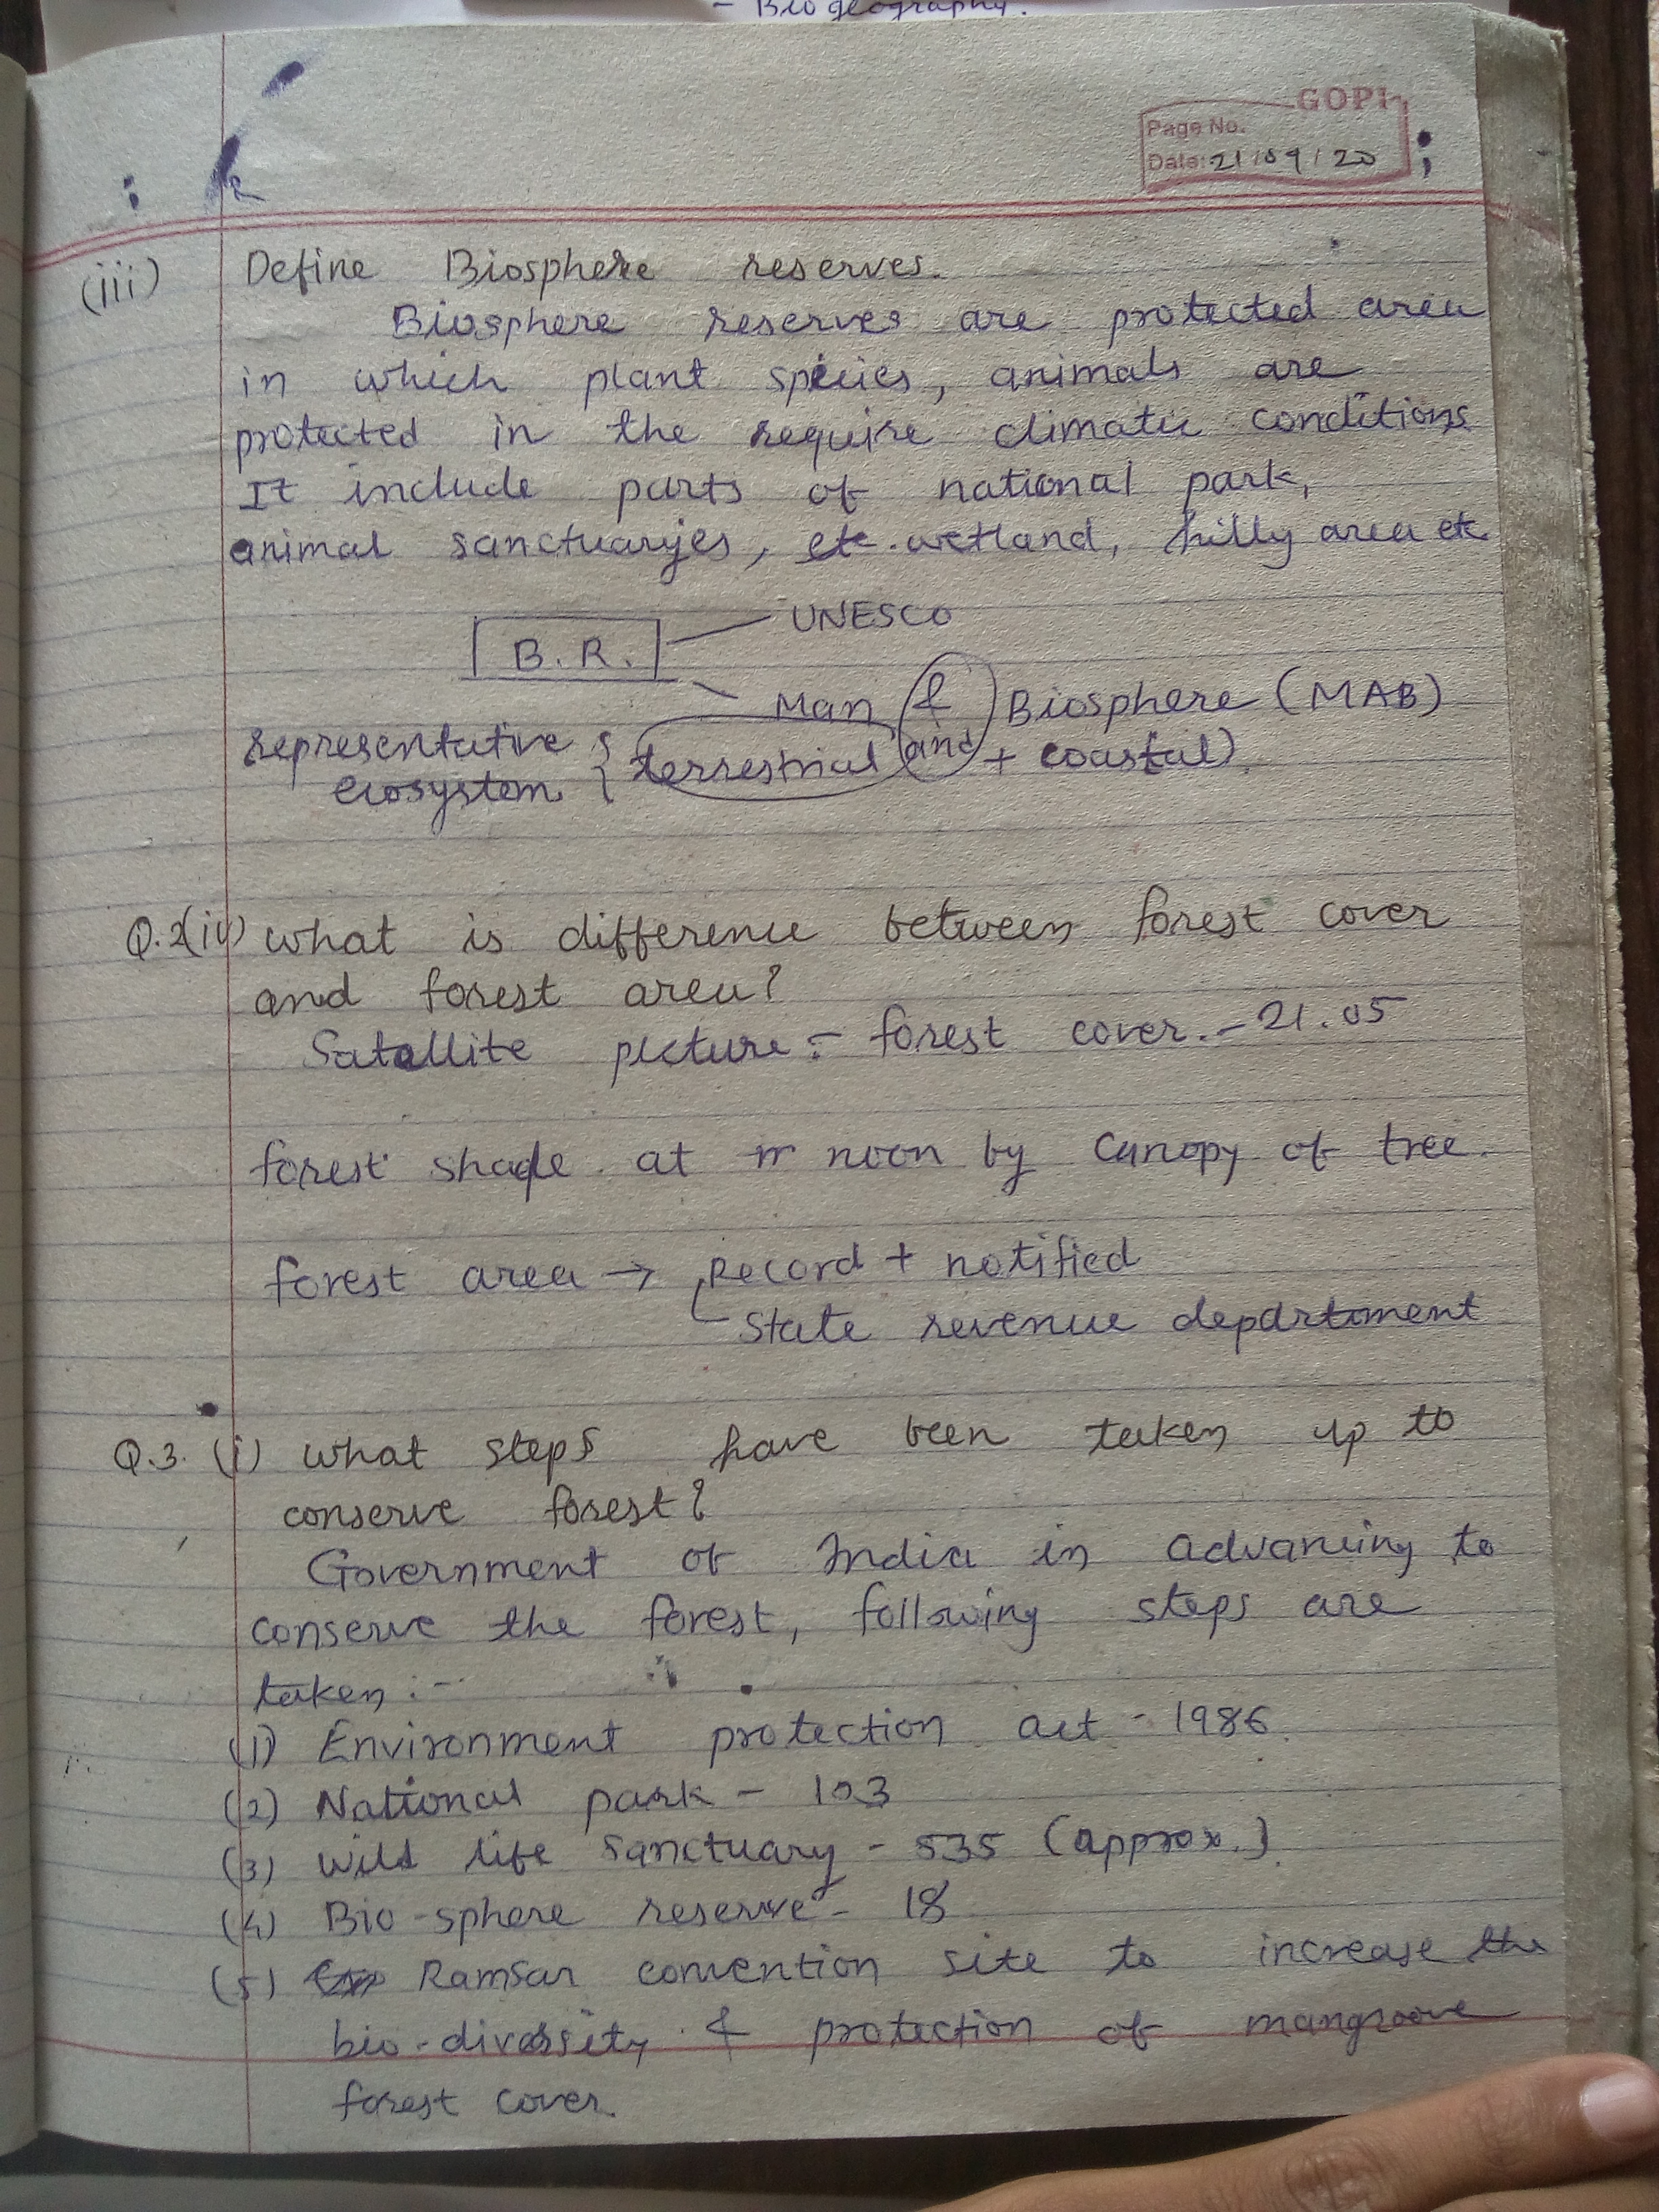 - Biogeography.
GOPI
Page No.
Date: 21/09/20
(iii) Define Biosphere reserves.
Biosphere reserves are protected area
in which plant species, animals are
protected in the require climatic conditions
It include parts of national park,
animal sanctuaryies, etc. wetland, hilly area etc
B.R. UNESCO
Man & Biosphere (MAB)
representative { terrestrial and + coastal)
ecosystem
Q.2(iv) what is difference between forest cover
and forest area?
Satellite picture :- forest cover. - 21.05
forest shade at noon by canopy of tree.
forest area → Record + notified
State revenue department
Q.3. (i) what steps have been taken up to
conserve forest?
Government of India in advancing to
conserve the forest, following steps are
taken :-
(1) Environment protection act - 1986
(2) National park - 103
(3) Wild life sanctuary - 535 (approx.)
(4) Bio-sphere reserve - 18
(5) Ramsar convention site to increase the
bio-diversity & protection of mangroove
forest cover.